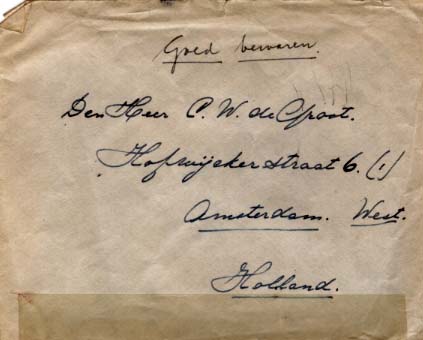 Goed bewaren.
Den Heer C. W. de Groot.
Hofwijckerstraat 6. (1)
Amsterdam. West.
Holland.